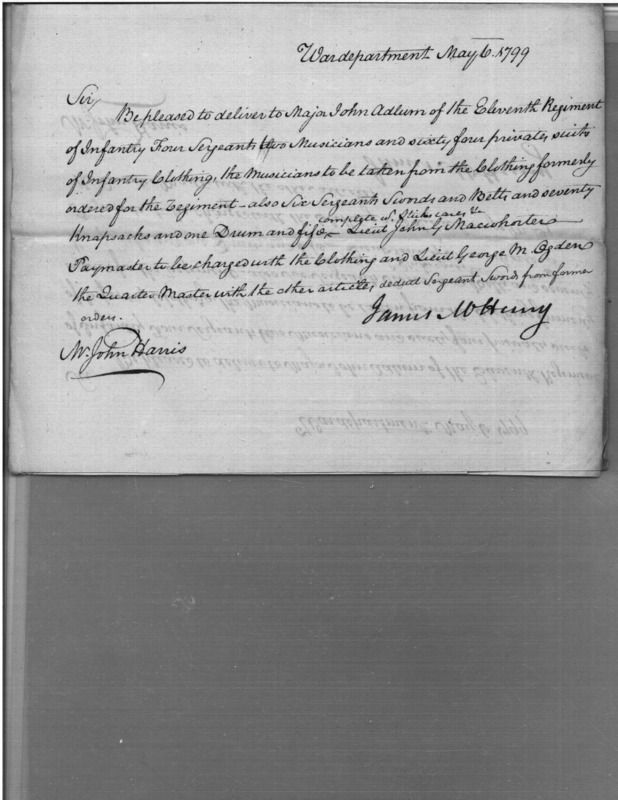 War department May 6. 1799
Sir
Be pleased to deliver to Major John Adlum of the Eleventh Regiment
of Infantry Four Sergeants two Musicians and sixty four privates, suits
of Infantry Clothing, the Musicians to be taken from the Clothing formerly
ordered for the Regiment - also Six Sergeants Swords and Belts and seventy
complete wt. Sticks cases &c
Knapsacks and one Drum and fife, Lieut John G Macwhorter
Paymaster to be charged with the Clothing and Lieut George M. Ogden
the Quarter Master with the other articles, deduct Sergeant Swords from former
orders.
James McHenry
Mr. John Harris